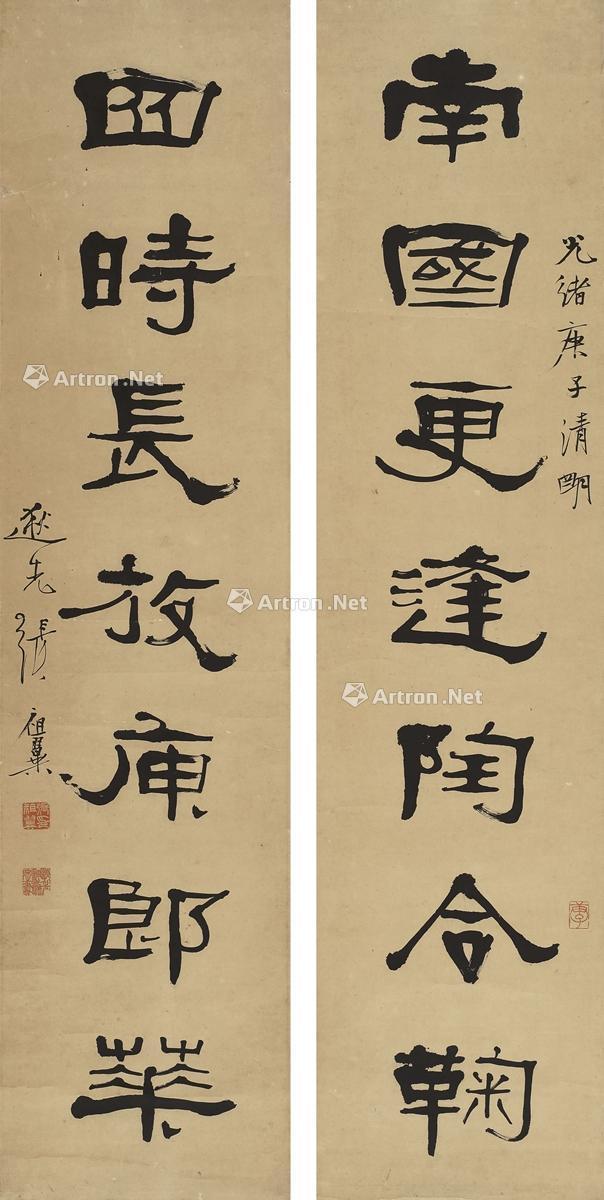 光緒庚子清明
南國更逢陶令鞠
四時長放庾郎華
逖先張祖翼
Artron.Net
Artron.Net
Artron.Net